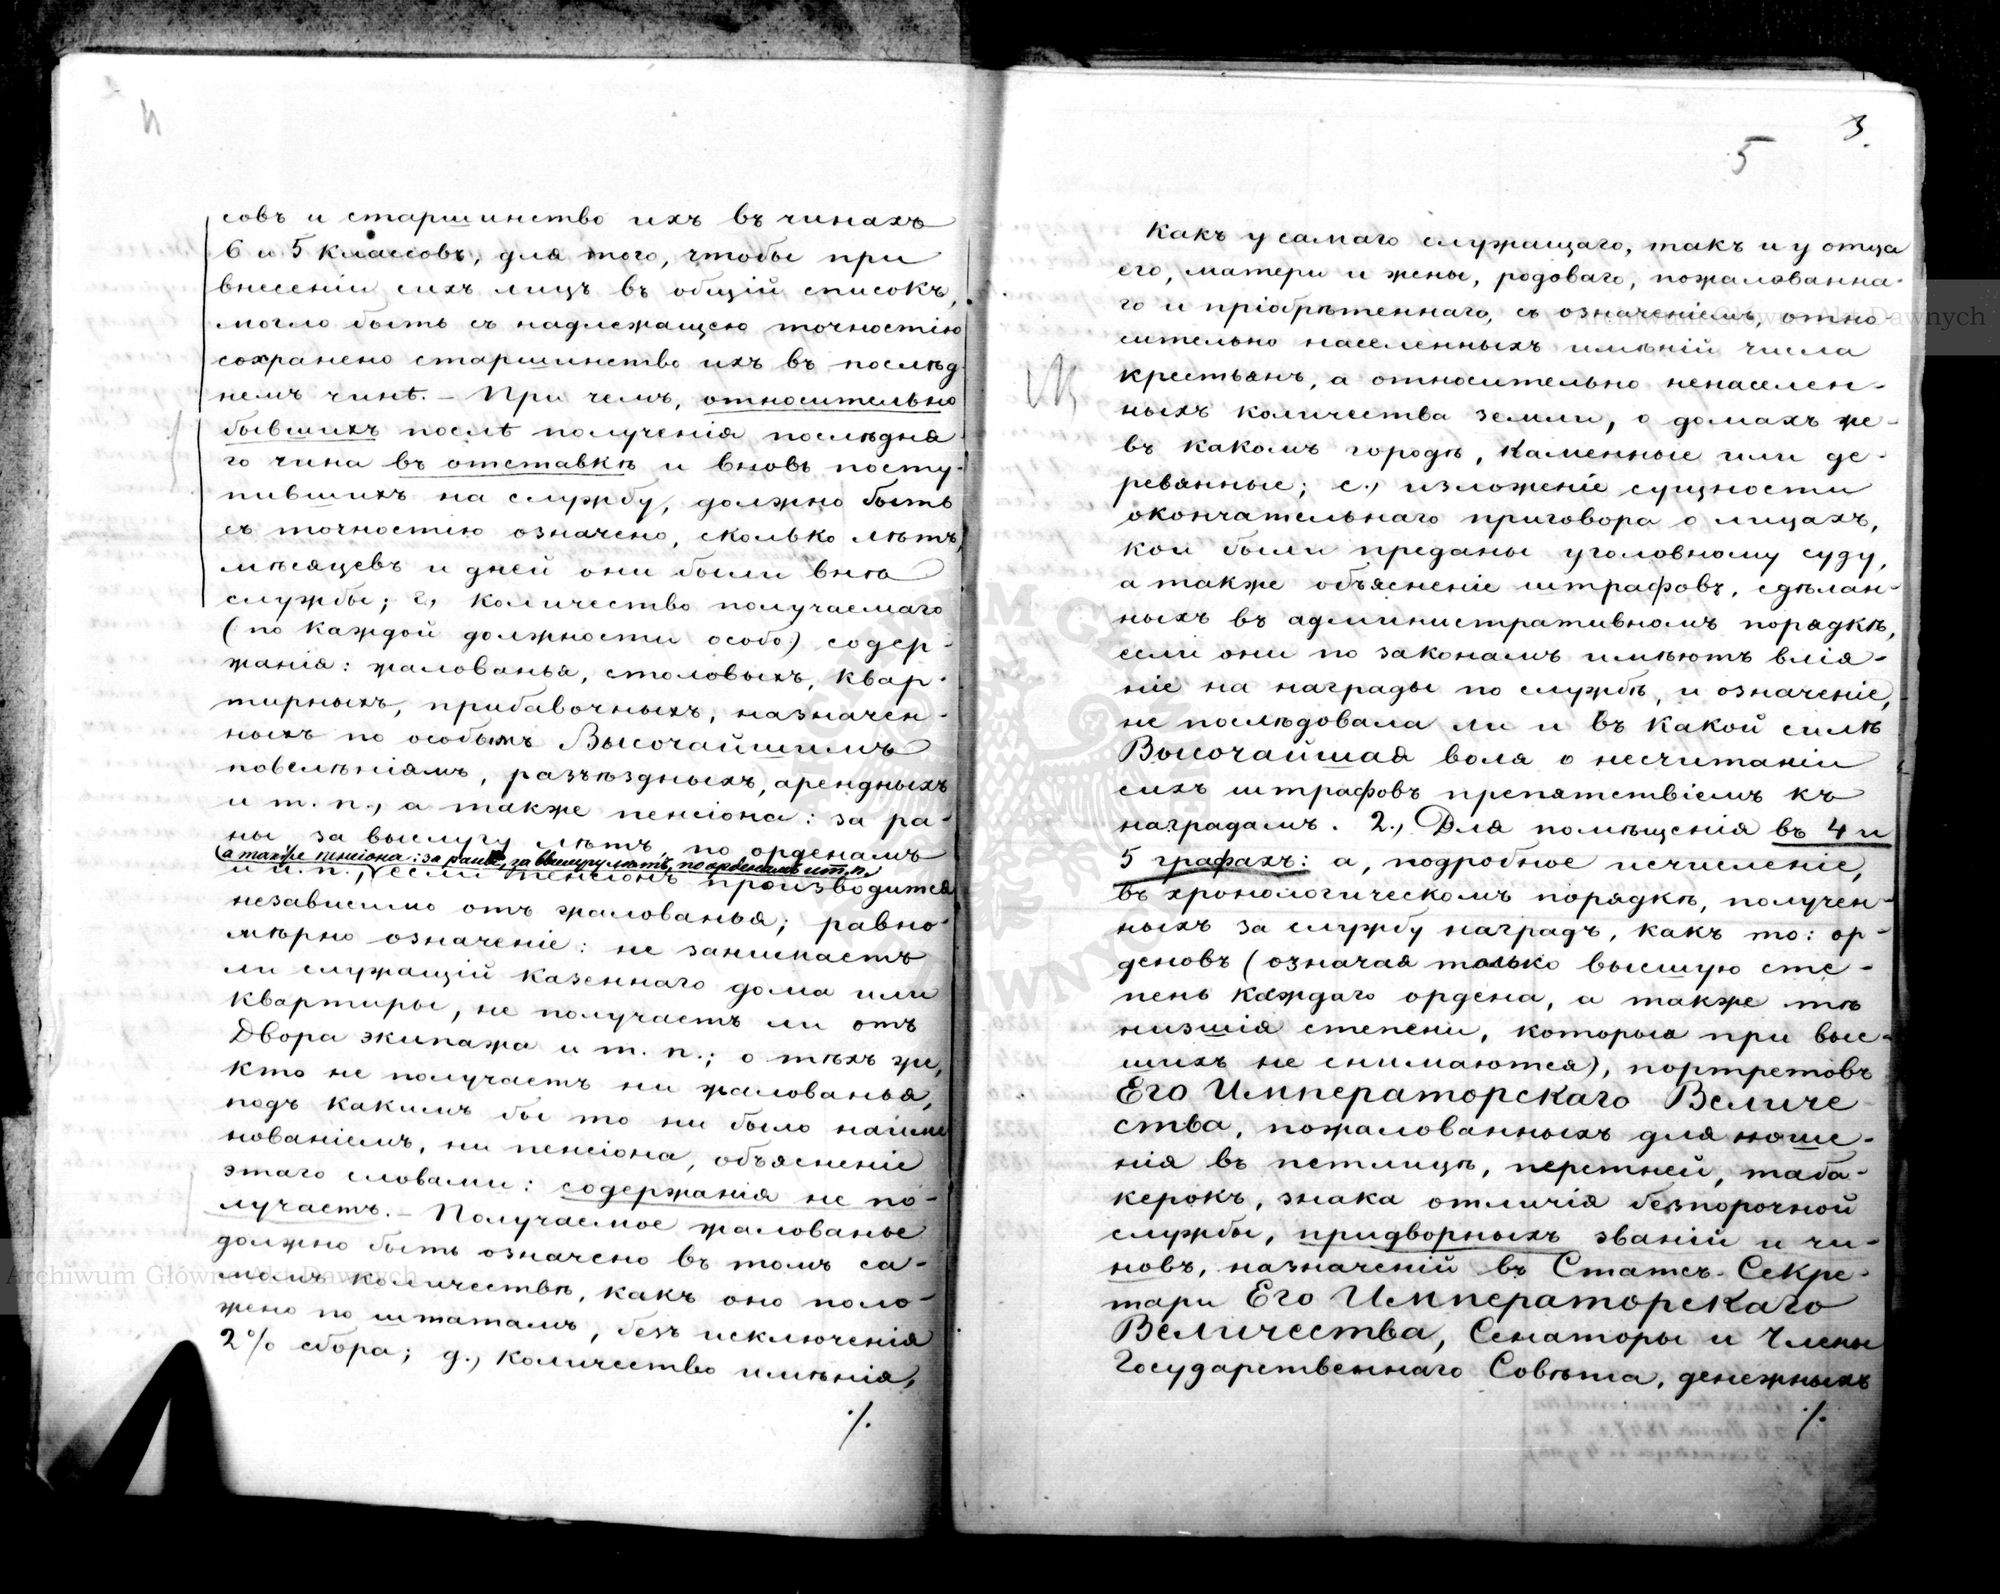 4
совъ и старшинство ихъ въ чинахъ
6 и 5 классовъ, для того, чтобы при
внесеніи сихъ лицъ въ общій списокъ,
могло быть съ надлежащею точностію
сохранено старшинство ихъ въ послѣд
немъ чинѣ. — При чемъ, относительно
бывшихъ послѣ полученія послѣдня
го чина въ отставкѣ и вновь посту-
пившихъ на службу, должно быть
съ точностію означено, сколько лѣтъ,
мѣсяцевъ и дней они были внѣ
службы; г., количество получаемаго
(по каждой должности особо) содер-
жанія: жалованья, столовыхъ, квар-
тирныхъ, прибавочныхъ, назначен-
ныхъ по особымъ Высочайшимъ
повелѣніямъ, разъѣздныхъ, арендныхъ
и т. п., а также пенсіона: за ра-
ны за выслугу лѣтъ, по орденамъ
(а также пенсіона: за раны, за выслугу лѣтъ, по орденамъ и т. п.
и т. п., если пенсіонъ производится
независимо отъ жалованья; равно-
мѣрно означеніе: не занимаетъ
ли служащій казеннаго дома или
квартиры, не получаетъ ли отъ
Двора экипажа и т. п.; о тѣхъ же,
кто не получаетъ ни жалованья,
подъ какимъ бы то ни было наиме
нованіемъ, ни пенсіона, объясненіе
этаго словами: содержанія не по-
лучаетъ. — Получаемое жалованье
должно быть означено въ томъ са-
момъ количествѣ, какъ оно поло-
жено по штатамъ, безъ исключенія
2% сбора; д., количество имѣнія,
./.
3.
5
какъ у самаго служащаго, такъ и у отца
его, матери и жены, родоваго, пожалованна-
го и пріобрѣтеннаго, съ означеніемъ, отно-
сительно населенныхъ имѣній числа
крестьянъ, а относительно ненаселен-
ныхъ количества земли, о домахъ же-
въ какомъ городѣ, каменные или де-
ревянные; е., изложеніе сущности
окончательнаго приговора о лицахъ,
кои были преданы уголовному суду,
а также объясненіе штрафовъ, сдѣлан-
ныхъ въ административномъ порядкѣ,
если они по законамъ имѣютъ влія-
ніе на награды по службѣ, и означеніе,
не послѣдовала ли и въ какой силѣ
Высочайшая воля о несчитаніи
сихъ штрафовъ препятствіемъ къ
наградамъ. 2., Для помѣщенія въ 4 и
5 графахъ: а, подробное исчисленіе,
въ хронологическомъ порядкѣ, получен-
ныхъ за службу наградъ, какъ то: ор-
деновъ (означая только высшую сте-
пень каждаго ордена, а также тѣ
низшія степени, которыя при выс-
шихъ не снимаются), портретовъ
Его Императорскаго Величе
ства, пожалованныхъ для ноше-
нія въ петлицѣ, перстней, таба-
керокъ, знака отличія безпорочной
службы, придворныхъ званій и чи-
новъ, назначеній въ Статсъ-Секре-
тари Его Императорскаго
Величества, Сенаторы и Члены
Государственнаго Совѣта, денежныхъ
./.
Archiwum Główne Akt Dawnych
Archiwum Główne Akt Dawnych